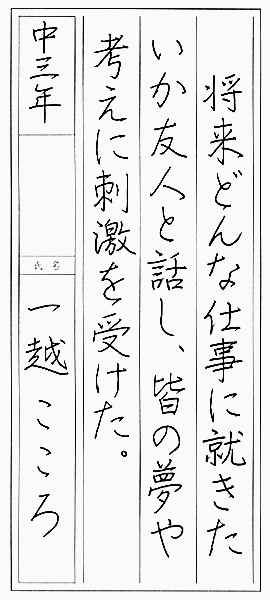 将来どんな仕事に就きた
いか友人と話し、皆の夢や
考えに刺激を受けた。
中三年
氏名
一越こころ